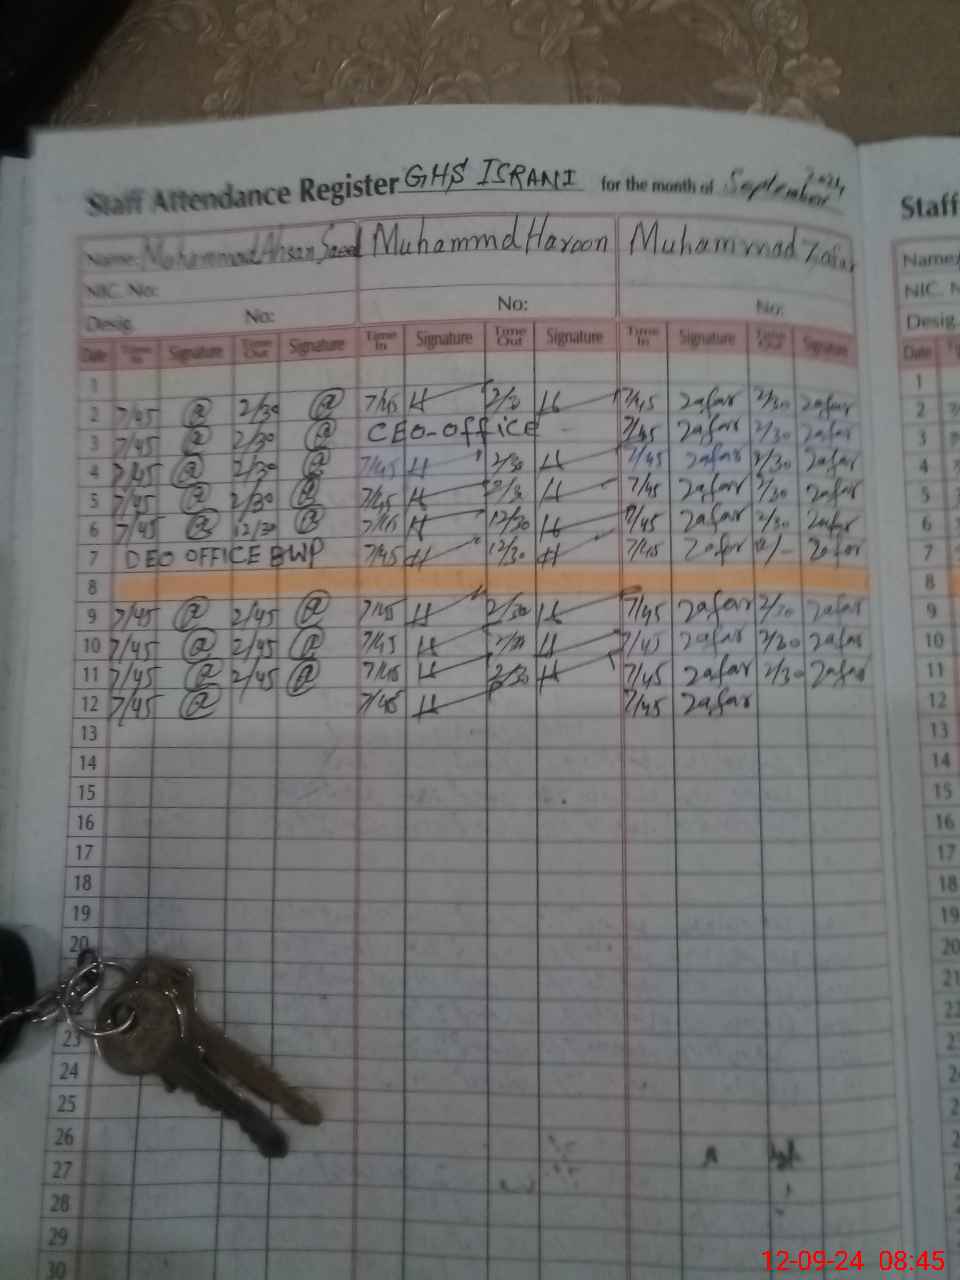 Staff Attendance Register GHS ISRANI for the month of September 2024
Name: Mohammad Ahsan Saeed Muhammd Haroon Muhammad Zafar
NIC. No:
Desig. No: No: No:
Date Time In Signature Time Out Signature Time In Signature Time Out Signature Time In Signature Time Out Signature
1
2 7/45 @ 2/30 @ 7/45 H 2/30 H 7/45 zafar 2/30 zafar
3 7/45 @ 2/30 @ CEO-office 7/45 zafar 2/30 zafar
4 7/45 @ 2/30 @ 7/45 H 2/30 H 7/45 zafar 2/30 zafar
5 7/45 @ 2/30 @ 7/45 H 2/30 H 7/45 zafar 2/30 zafar
6 7/45 @ 12/30 @ 7/45 H 12/30 H 7/45 zafar 2/30 zafar
7 DEO OFFICE BWP 7/45 H 12/30 H 7/45 zafar 12/- zafar
8
9 7/45 @ 2/45 @ 7/45 H 2/30 H 7/45 zafar 2/30 zafar
10 7/45 @ 2/45 @ 7/45 H 2/30 H 7/45 zafar 2/30 zafar
11 7/45 @ 2/45 @ 7/45 H 2/30 H 7/45 zafar 2/30 zafar
12 7/45 @ 7/45 H 7/45 zafar
13
14
15
16
17
18
19
20
23
24
25
26
27
28
29
30
Staff
Name
NIC. N
Desig.
Date
1
2
3
4
5
6
7
8
9
10
11
12
13
14
15
16
17
18
19
20
21
22
12-09-24 08:45